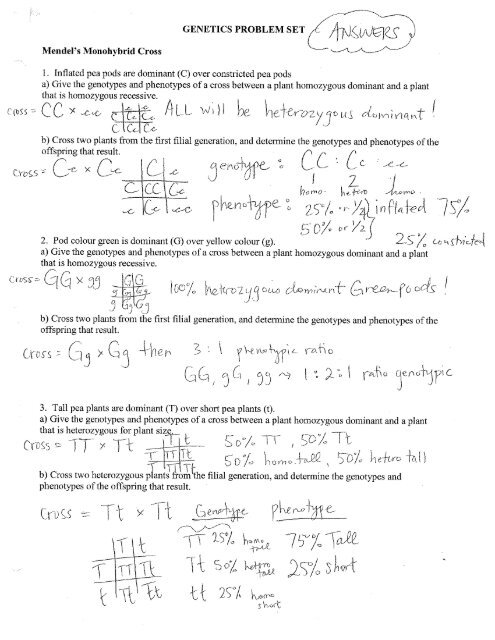 GENETICS PROBLEM SET ANSWERS
Mendel's Monohybrid Cross
1. Inflated pea pods are dominant (C) over constricted pea pods
a) Give the genotypes and phenotypes of a cross between a plant homozygous dominant and a plant
that is homozygous recessive.
cross = CC × cc ALL will be heterozygous dominant!
c c
C Cc Cc
C Cc Cc
b) Cross two plants from the first filial generation, and determine the genotypes and phenotypes of the
offspring that result.
cross = Cc × Cc genotype : CC : Cc : cc
C c 1 2 1
C CC Cc homo. hetero homo.
c Cc cc phenotype : 25% or 1/4 inflated 75%
50% or 1/2
25% constricted
2. Pod colour green is dominant (G) over yellow colour (g).
a) Give the genotypes and phenotypes of a cross between a plant homozygous dominant and a plant
that is homozygous recessive.
cross = GG × gg 100% heterozygous dominant Green pods!
G G
g Gg Gg
g Gg Gg
b) Cross two plants from the first filial generation, and determine the genotypes and phenotypes of the
offspring that result.
cross = Gg × Gg then 3 : 1 phenotypic ratio
GG, gG, gg → 1 : 2 : 1 ratio genotypic
3. Tall pea plants are dominant (T) over short pea plants (t).
a) Give the genotypes and phenotypes of a cross between a plant homozygous dominant and a plant
that is heterozygous for plant size.
cross = TT × Tt 50% TT , 50% Tt
T t
T TT Tt 50% homo.tall, 50% hetero tall
T TT Tt
b) Cross two heterozygous plants from the filial generation, and determine the genotypes and
phenotypes of the offspring that result.
cross = Tt × Tt Genotype Phenotype
TT 25% homo tall 75% Tall
T t
T TT Tt Tt 50% hetero tall 25% short
t Tt tt tt 25% homo short